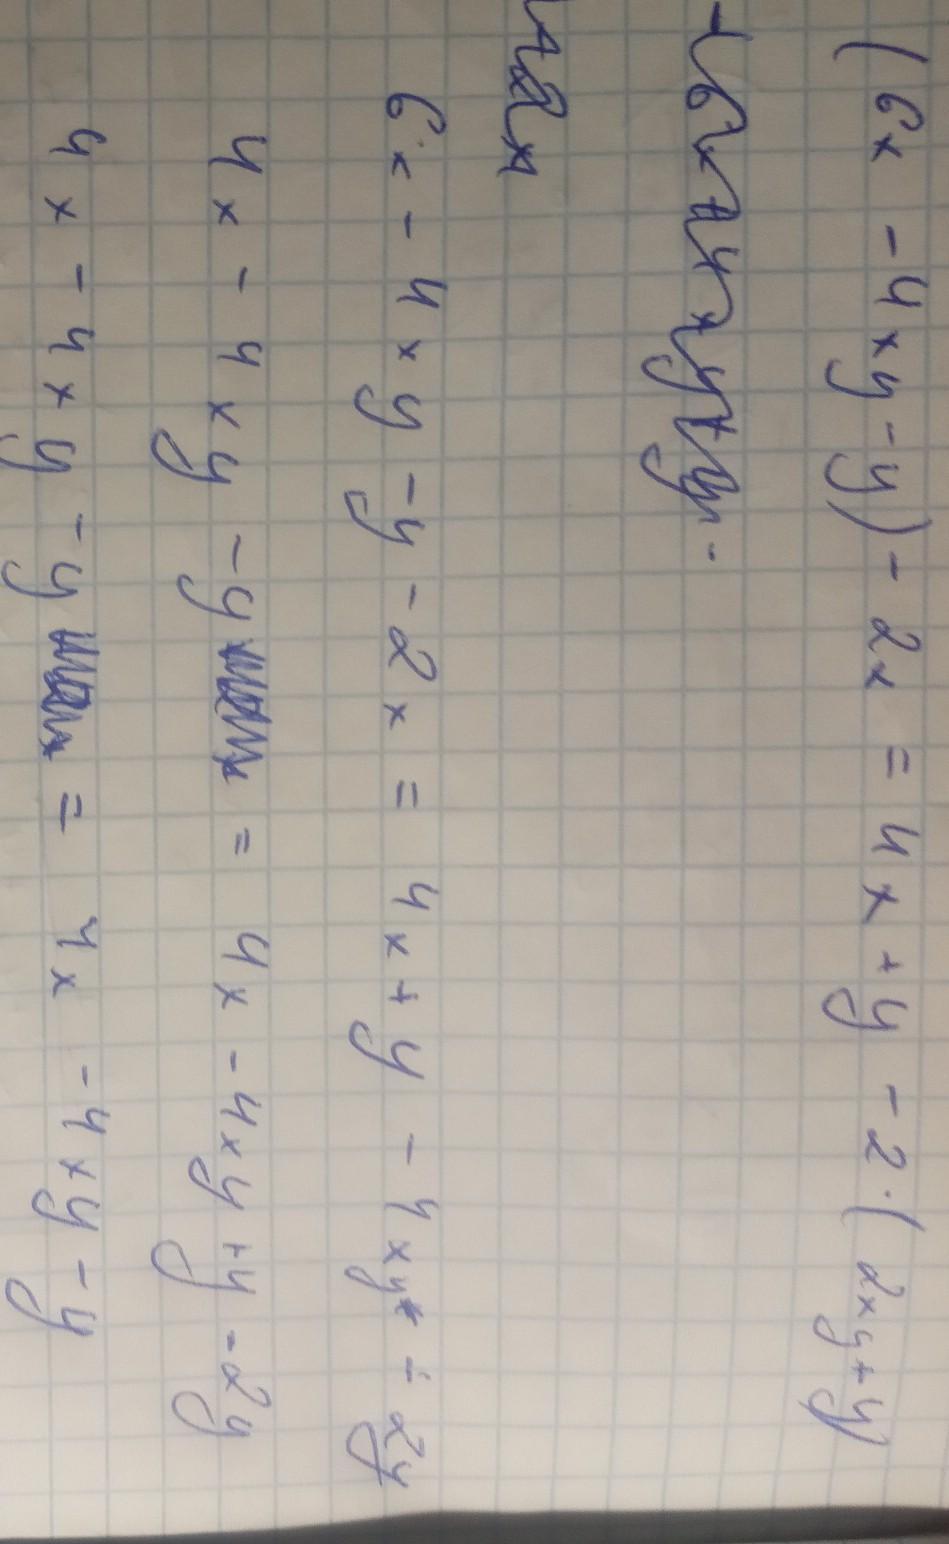 (6x - 4xy - y) - 2x = 4x + y - 2·(2xy + y)
6x - 4xy - y - 2x = 4x + y - 4xy - 2y
4x - 4xy - y = 4x - 4xy + y - 2y
4x - 4xy - y = 4x - 4xy - y